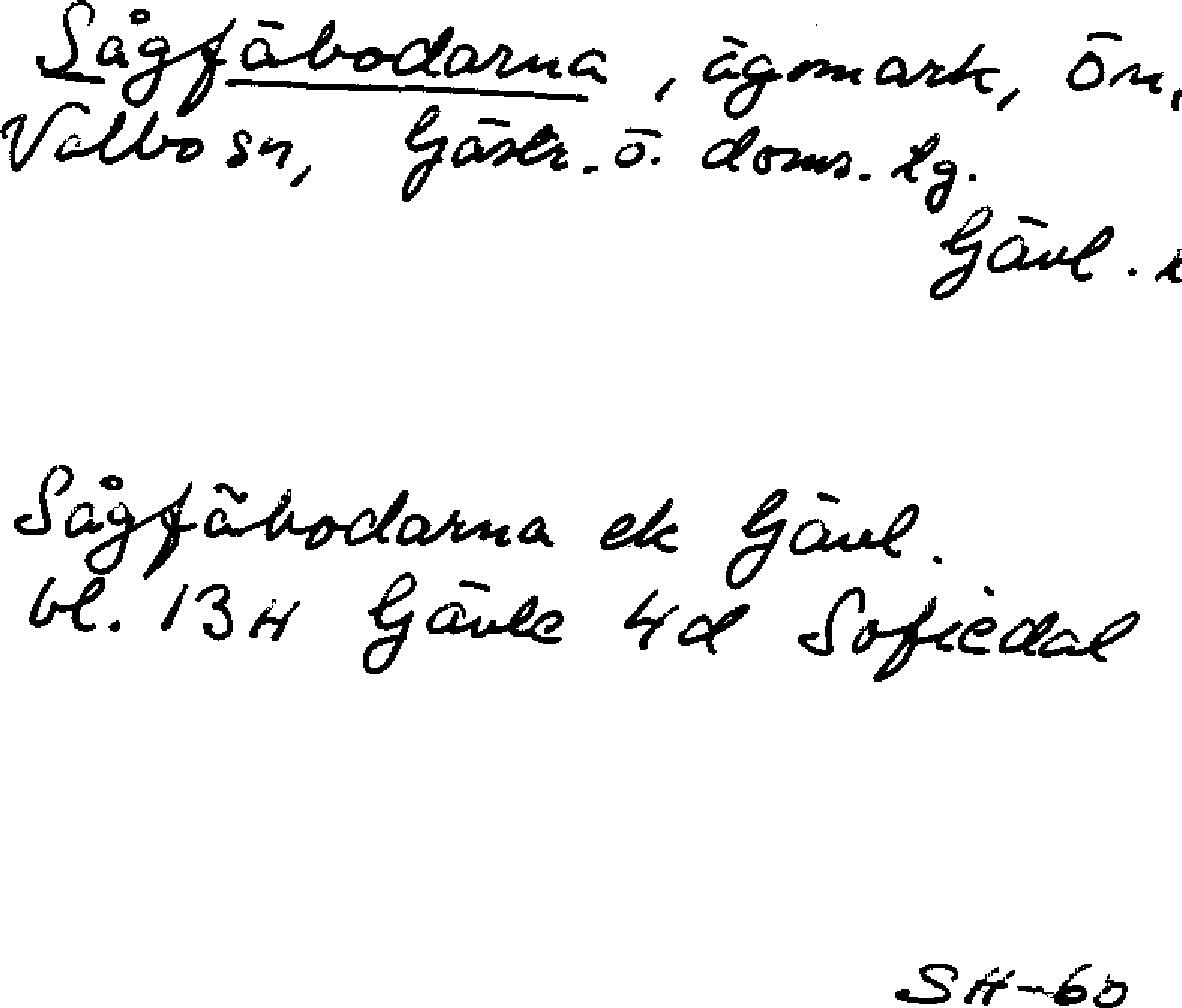 Sågfäbodarna, ägomark, Ön,
Valbo sn, Gästr. ö. doms. tg.
Gävl. l
Sågfäbodarna ek Gävl.
bl. 13H Gävle 4d Sofiedal
SH-60